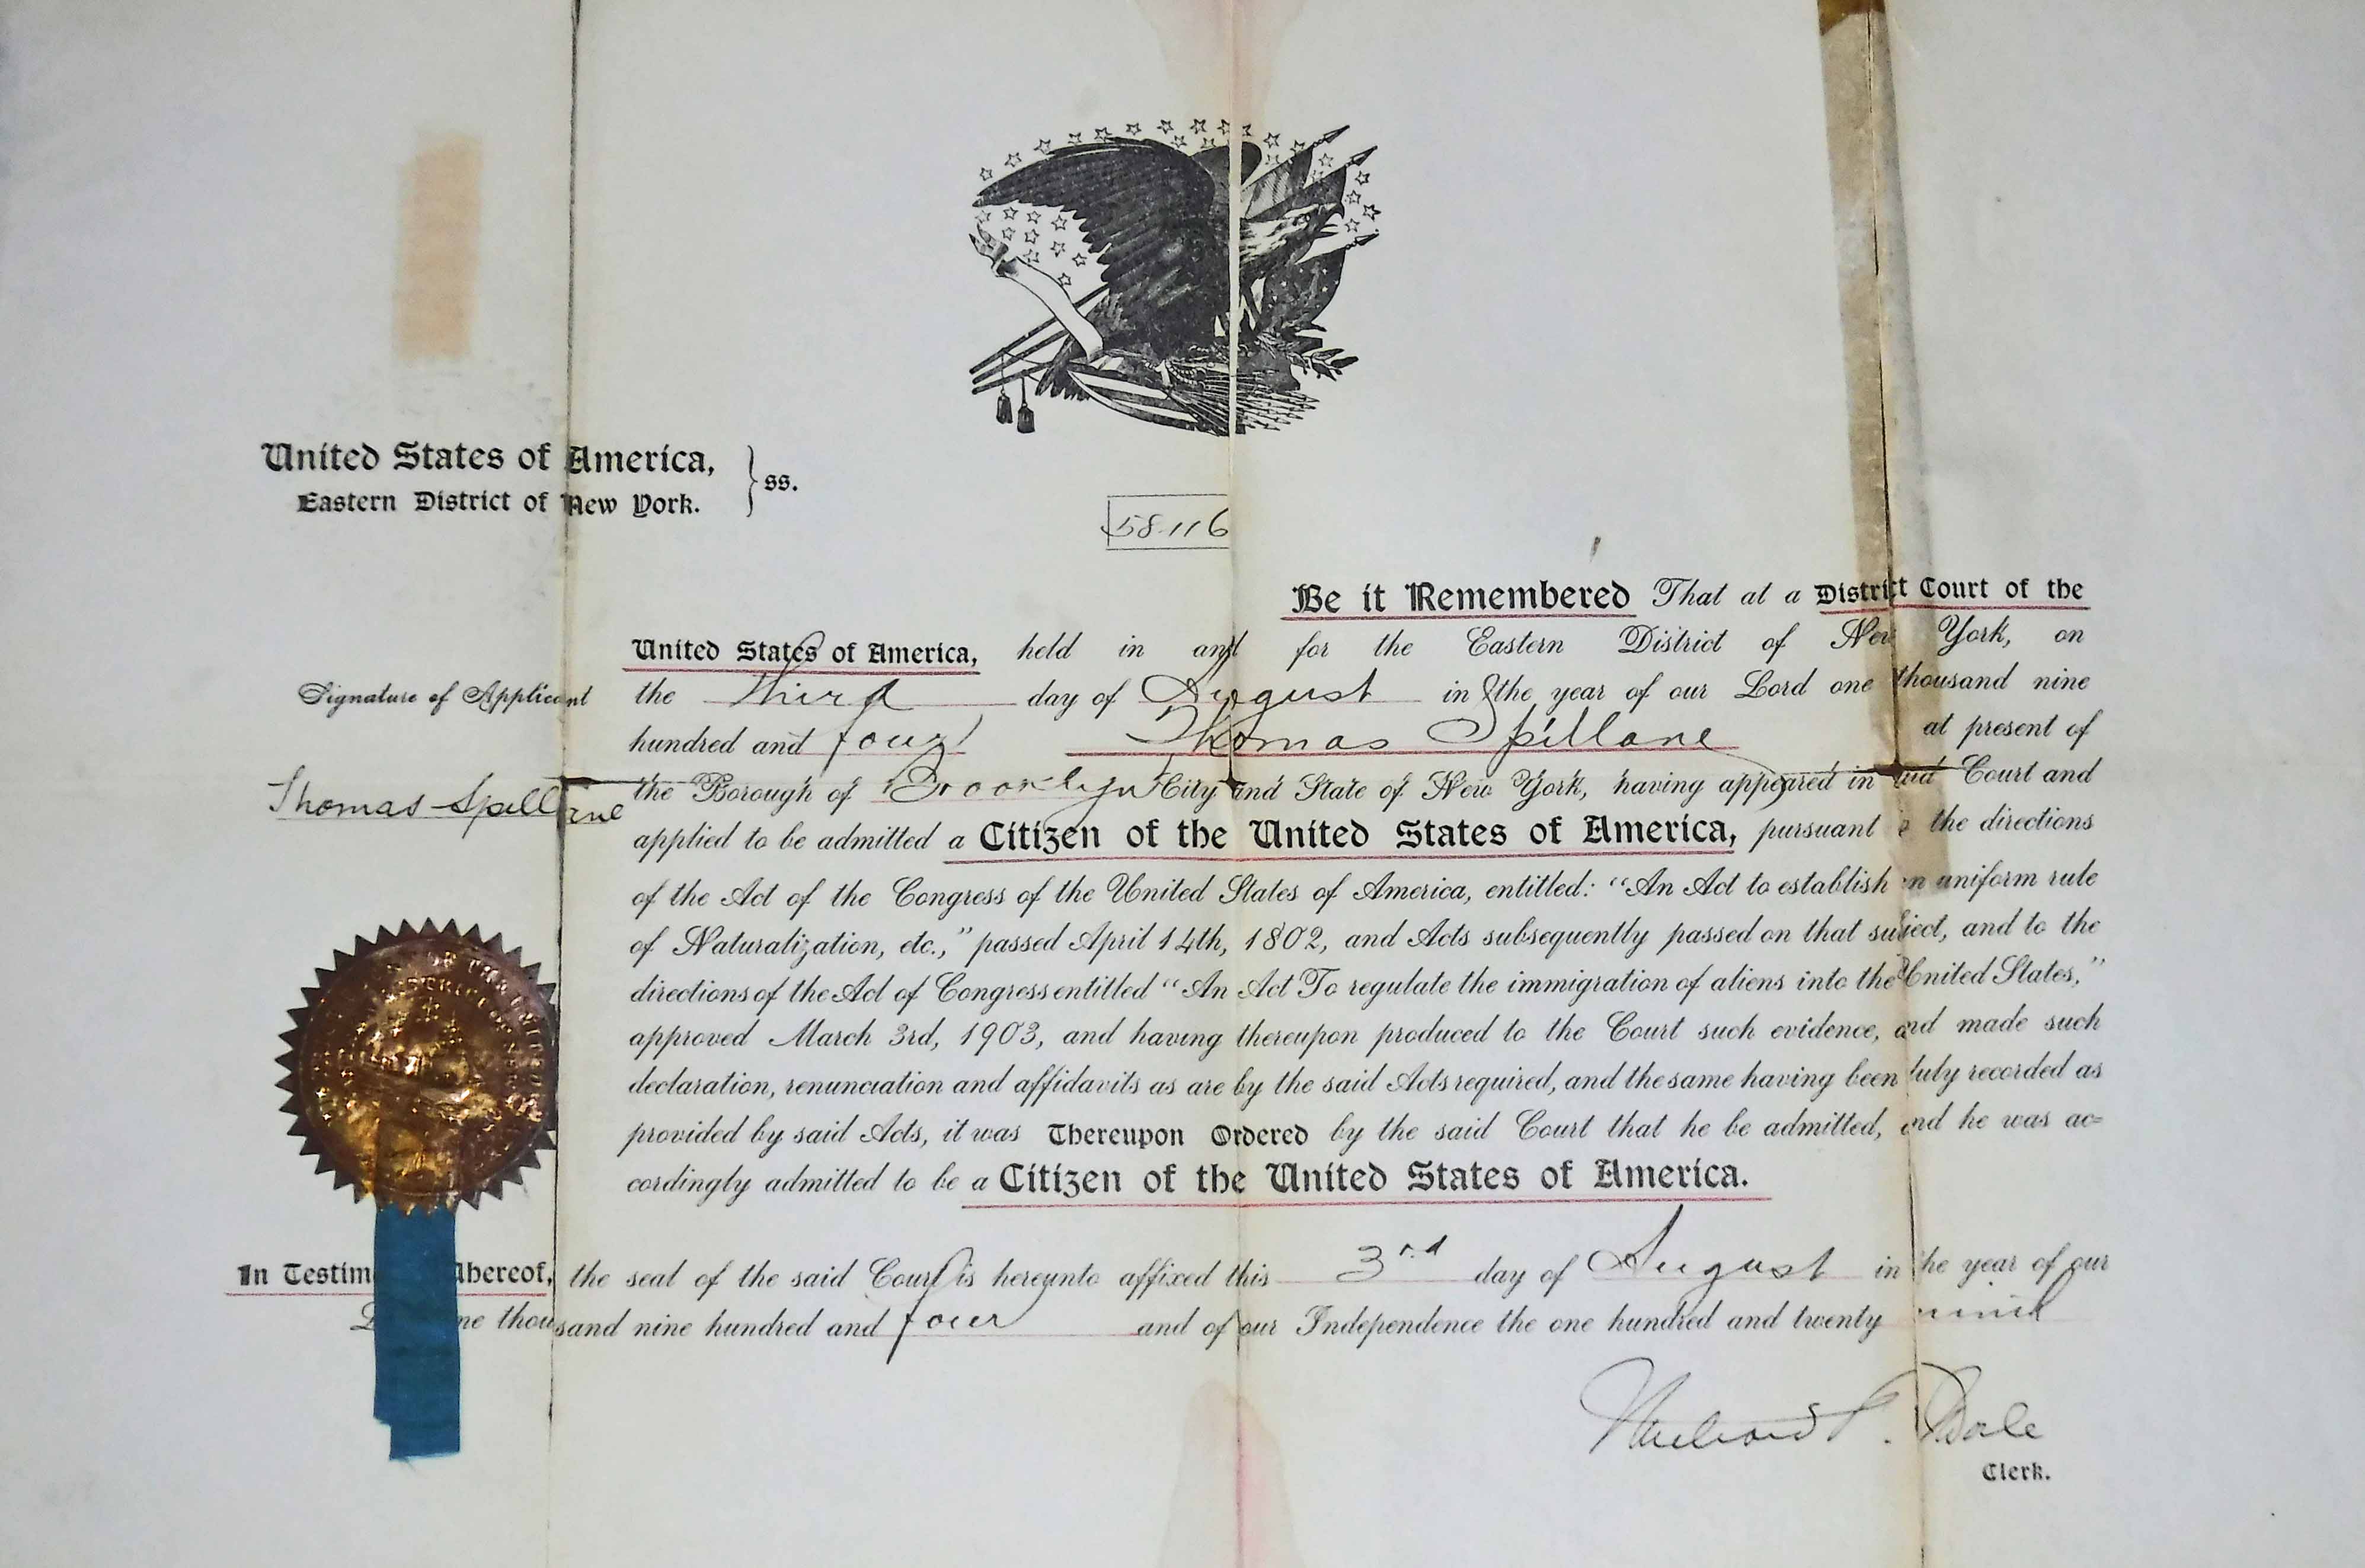 United States of America,
Eastern District of New York.
} ss.
58116
Be it Remembered That at a District Court of the
United States of America, held in and for the Eastern District of New York, on
Signature of Applicant
the third day of August in the year of our Lord one thousand nine
hundred and four, Thomas Spillane at present of
Thomas Spillane
the Borough of Brooklyn City and State of New York, having appeared in said Court and
applied to be admitted a Citizen of the United States of America, pursuant the directions
of the Act of the Congress of the United States of America, entitled: “An Act to establish an uniform rule
of Naturalization, etc.,” passed April 14th, 1802, and Acts subsequently passed on that subject, and to the
directions of the Act of Congress entitled “An Act To regulate the immigration of aliens into the United States,”
approved March 3rd, 1903, and having thereupon produced to the Court such evidence, and made such
declaration, renunciation and affidavits as are by the said Acts required, and the same having been duly recorded as
provided by said Acts, it was Thereupon Ordered by the said Court that he be admitted, and he was ac=
cordingly admitted to be a Citizen of the United States of America.
In Testim Whereof, the seal of the said Court is hereunto affixed this 3rd day of August in the year of our
ne thousand nine hundred and four and of our Independence the one hundred and twenty ninth
Clerk.